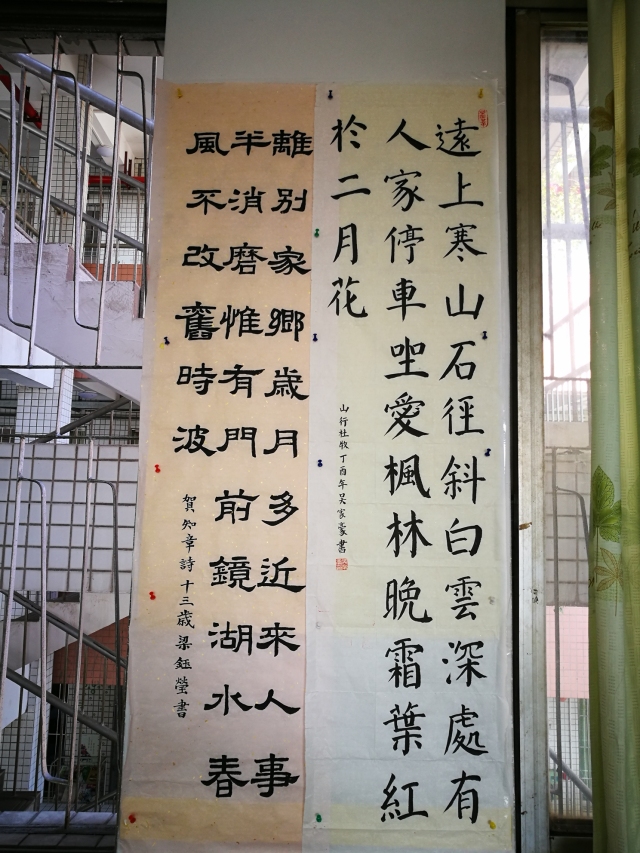 遠上寒山石徑斜白雲深處有
人家停車坐愛楓林晚霜葉紅
於二月花
山行杜牧丁酉年吴家豪書
離別家鄉歲月多近來人事
半消磨惟有門前鏡湖水春
風不改舊時波
賀知章詩十三歲梁鈺瑩書